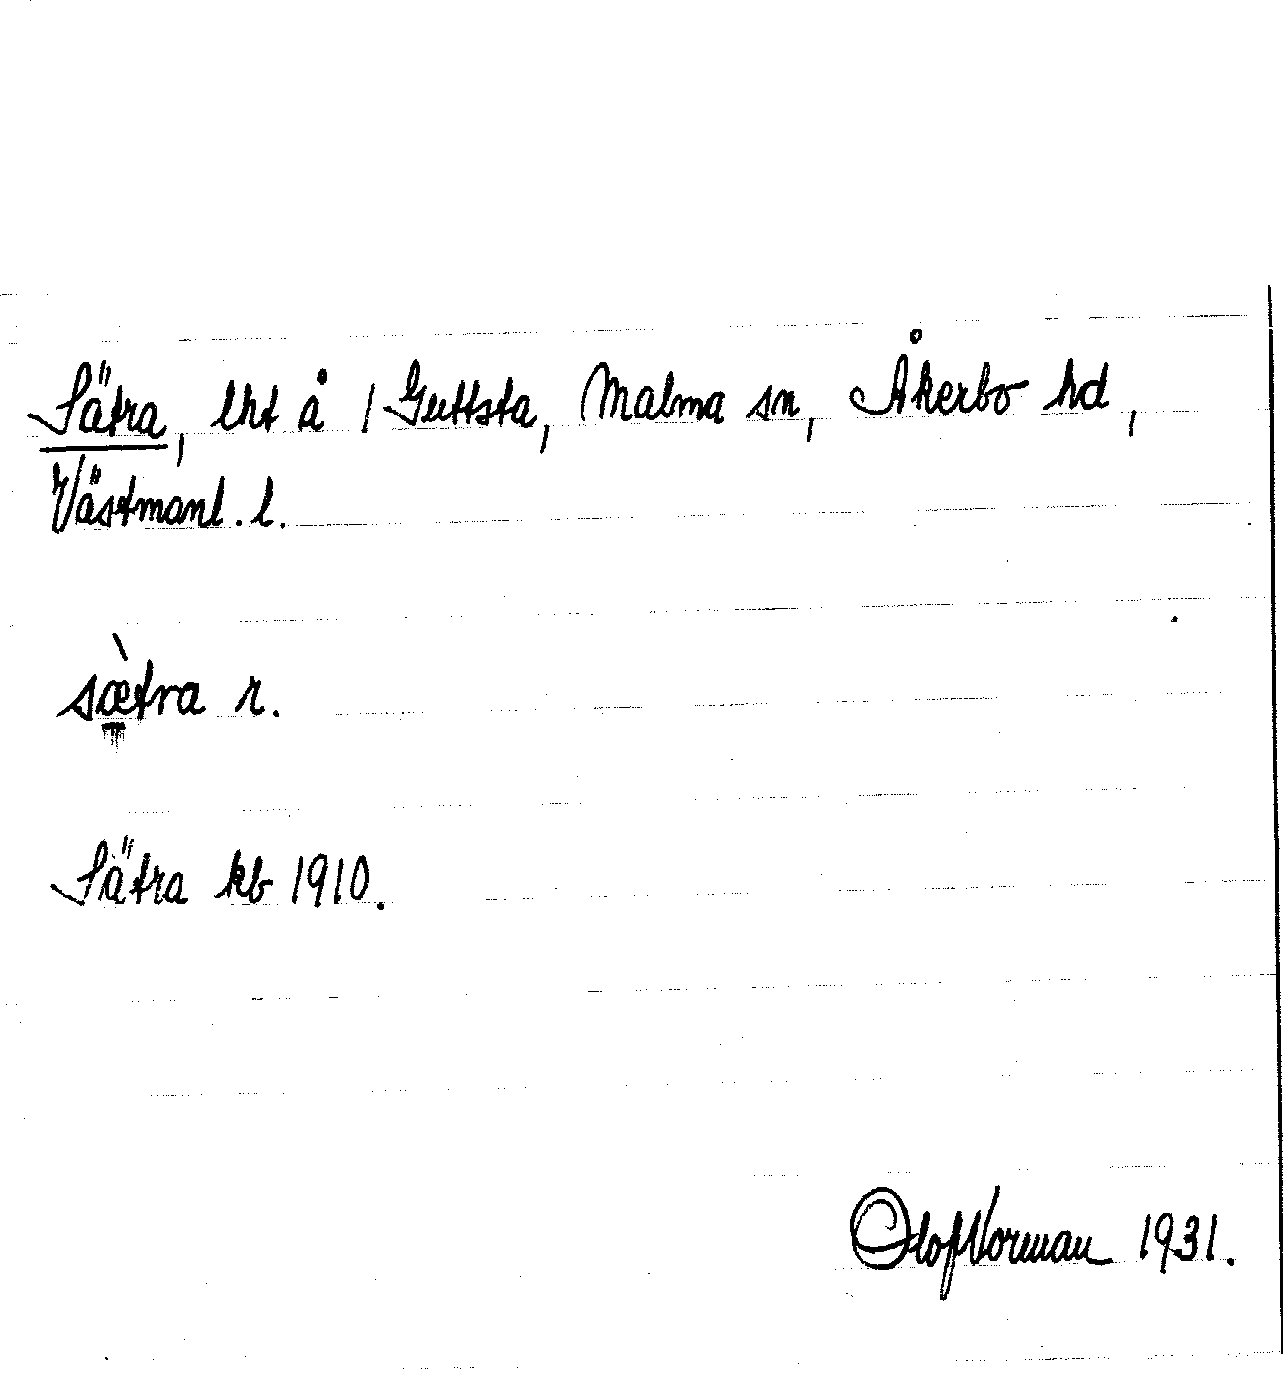 Sätra, lht å 1 Guttsta, Malma sn, Åkerbo hd,
Västmanl. l.
sæ̀tra r.
Sätra kb 1910.
Olof Norman 1931.